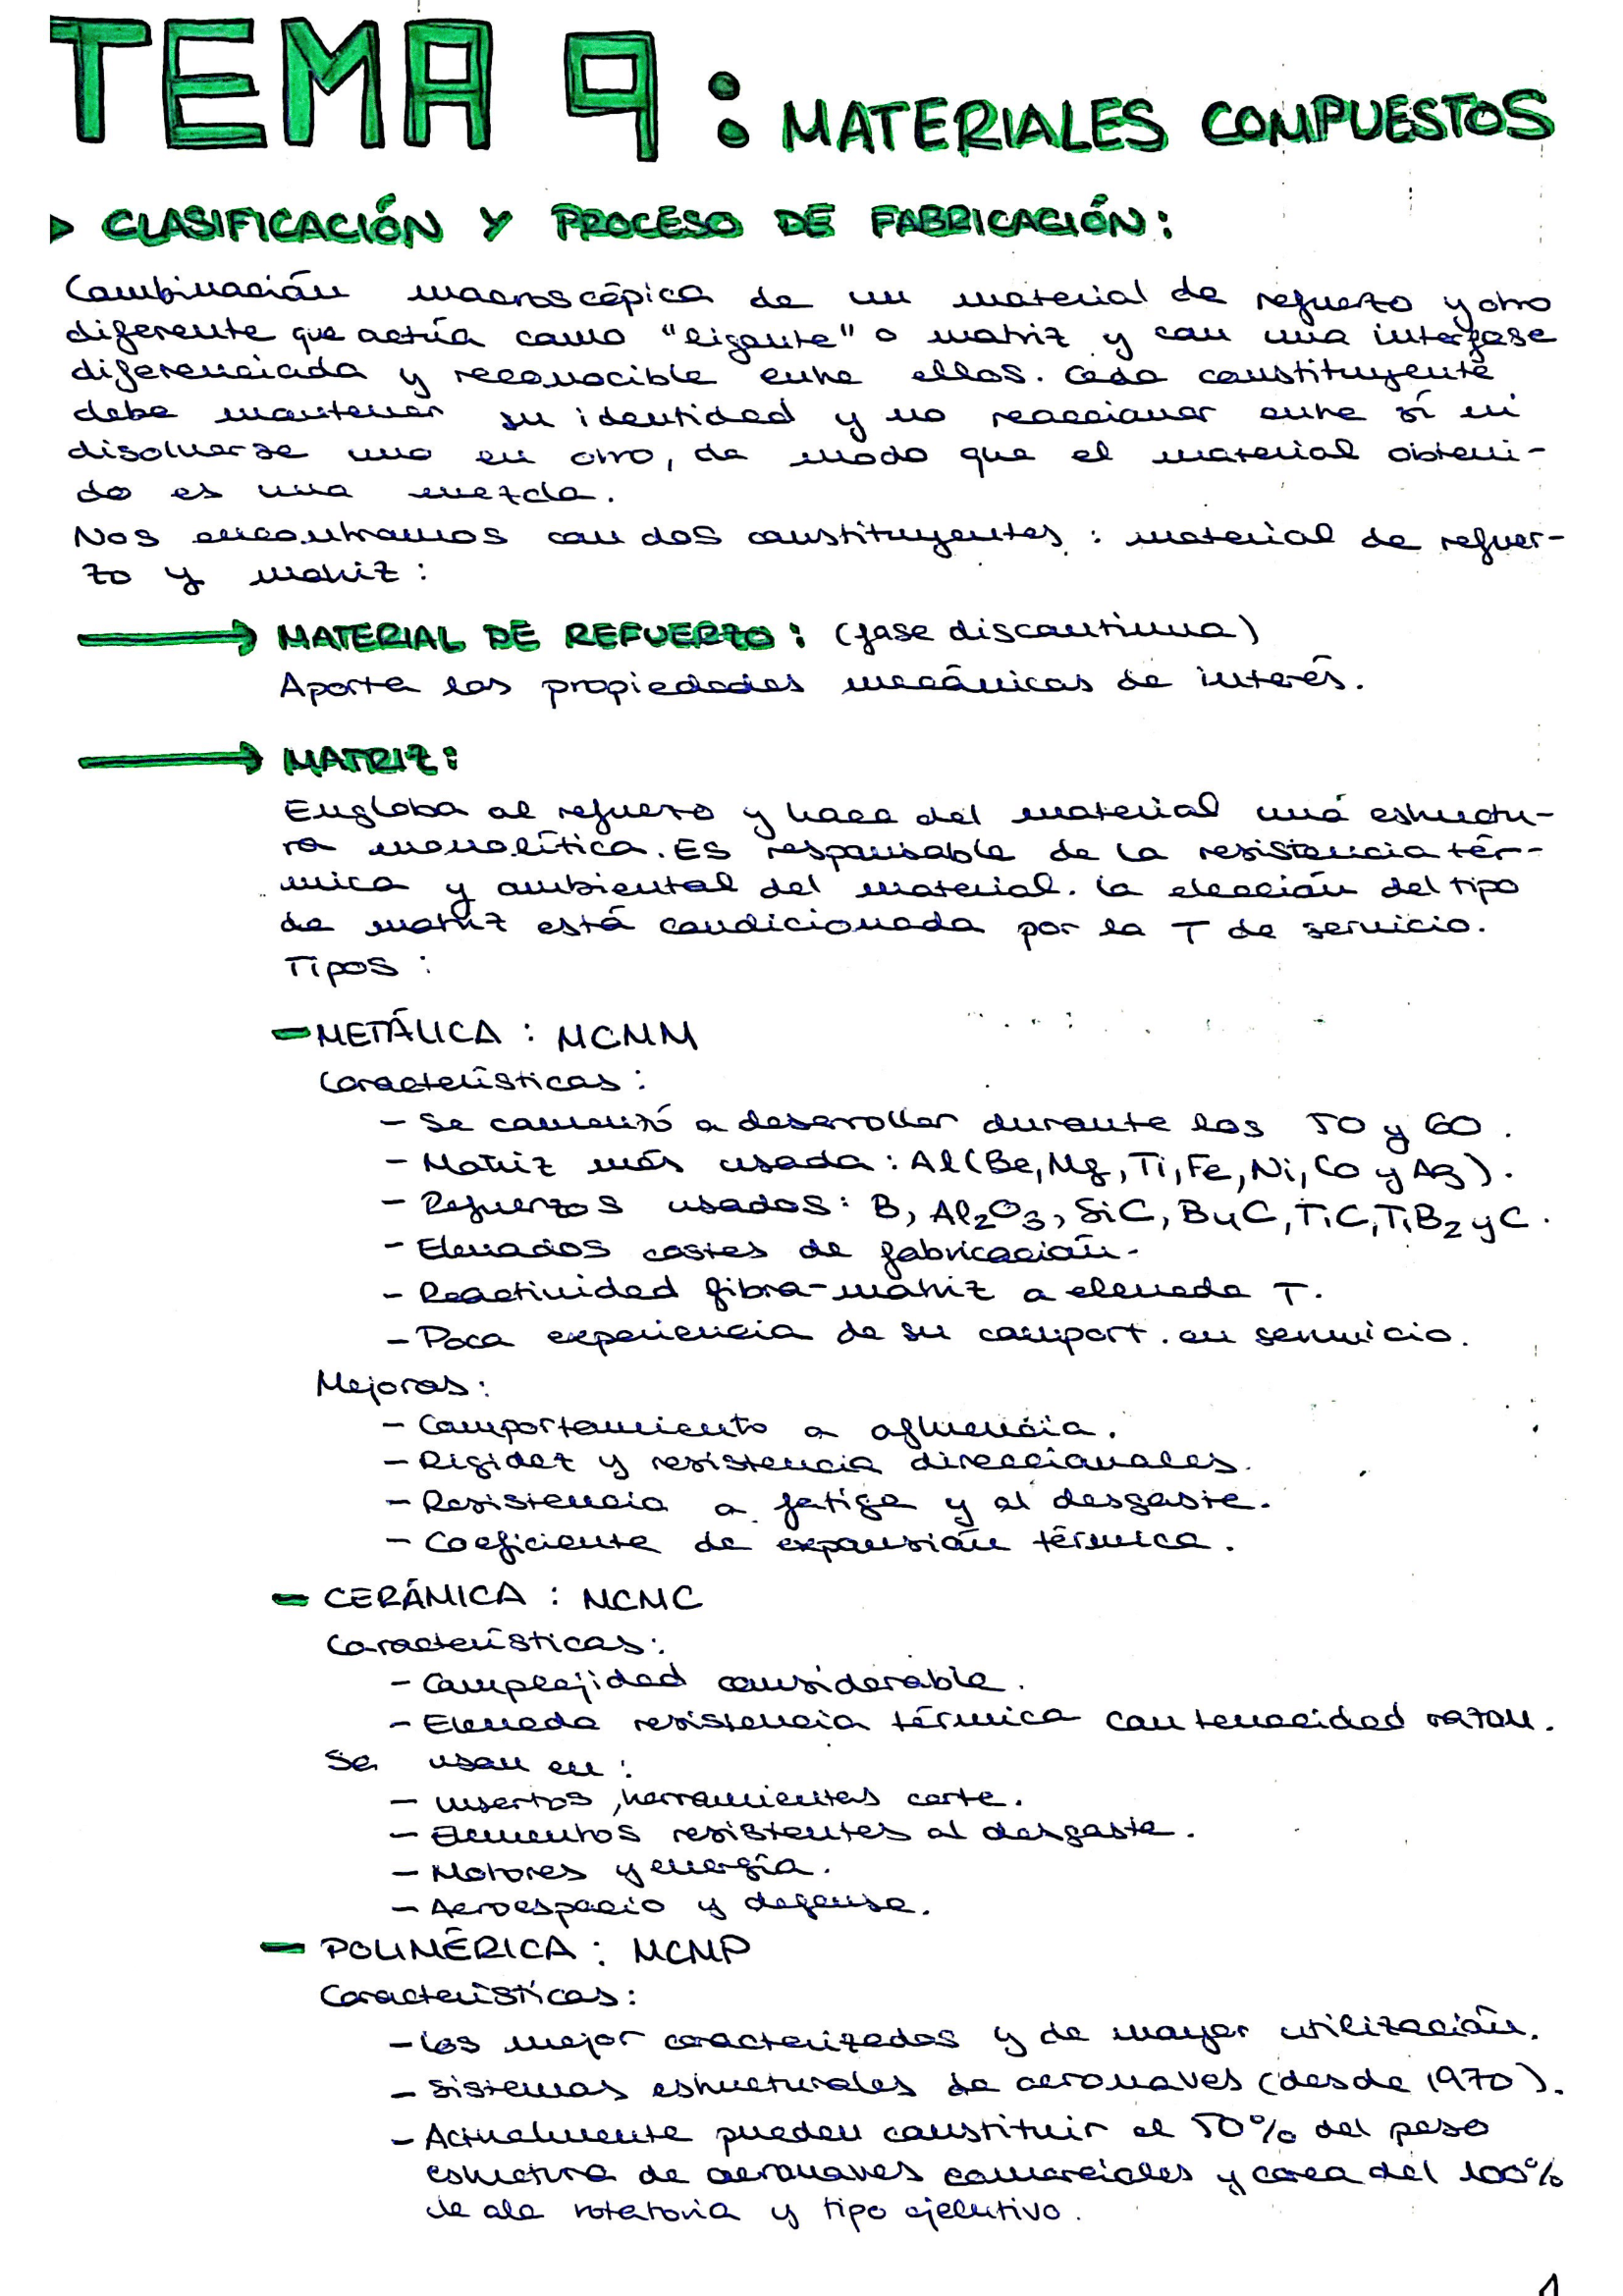 TEMA 9: MATERIALES COMPUESTOS
▷ CLASIFICACIÓN Y PROCESO DE FABRICACIÓN:
Combinación macroscópica de un material de refuerzo y otro
diferente que actúa como "ligante" o matriz y con una interfase
diferenciada y reconocible entre ellos. Cada constituyente
debe mantener su identidad y no reaccionar entre sí ni
disolverse uno en otro, de modo que el material obteni-
do es una mezcla.
Nos encontramos con dos constituyentes: material de refuer-
zo y matriz:
→ MATERIAL DE REFUERZO: (fase discontinua)
Aporta las propiedades mecánicas de interés.
→ MATRIZ:
Engloba al refuerzo y hace del material una estructu-
ra monolítica. Es responsable de la resistencia tér-
mica y ambiental del material. La elección del tipo
de matriz está condicionada por la T de servicio.
Tipos:
- METÁLICA: MCMM
Características:
- Se comenzó a desarrollar durante los 50 y 60.
- Matriz más usada: Al (Be, Mg, Ti, Fe, Ni, Co y Ag).
- Refuerzos usados: B, Al₂O₃, SiC, B4C, TiC, TiB₂ y C.
- Elevados costes de fabricación.
- Reactividad fibra-matriz a elevada T.
- Poca experiencia de su comport. en servicio.
Mejoras:
- Comportamiento a afluencia.
- Rigidez y resistencia direccionales.
- Resistencia a fatiga y al desgaste.
- Coeficiente de expansión térmica.
- CERÁMICA: MCMC
Características:
- Complejidad considerable.
- Elevada resistencia térmica con tenacidad razon.
Se usan en:
- Insertos, herramientas corte.
- Elementos resistentes al desgaste.
- Motores y energía.
- Aeroespacio y defensa.
- POLIMÉRICA: MCMP
Características:
- Los mejor caracterizados y de mayor utilización.
- Sistemas estructurales de aeronaves (desde 1970).
- Actualmente pueden constituir el 50% del peso
estructura de aeronaves comerciales y cerca del 100%
de ala rotatoria y tipo ejecutivo.
1